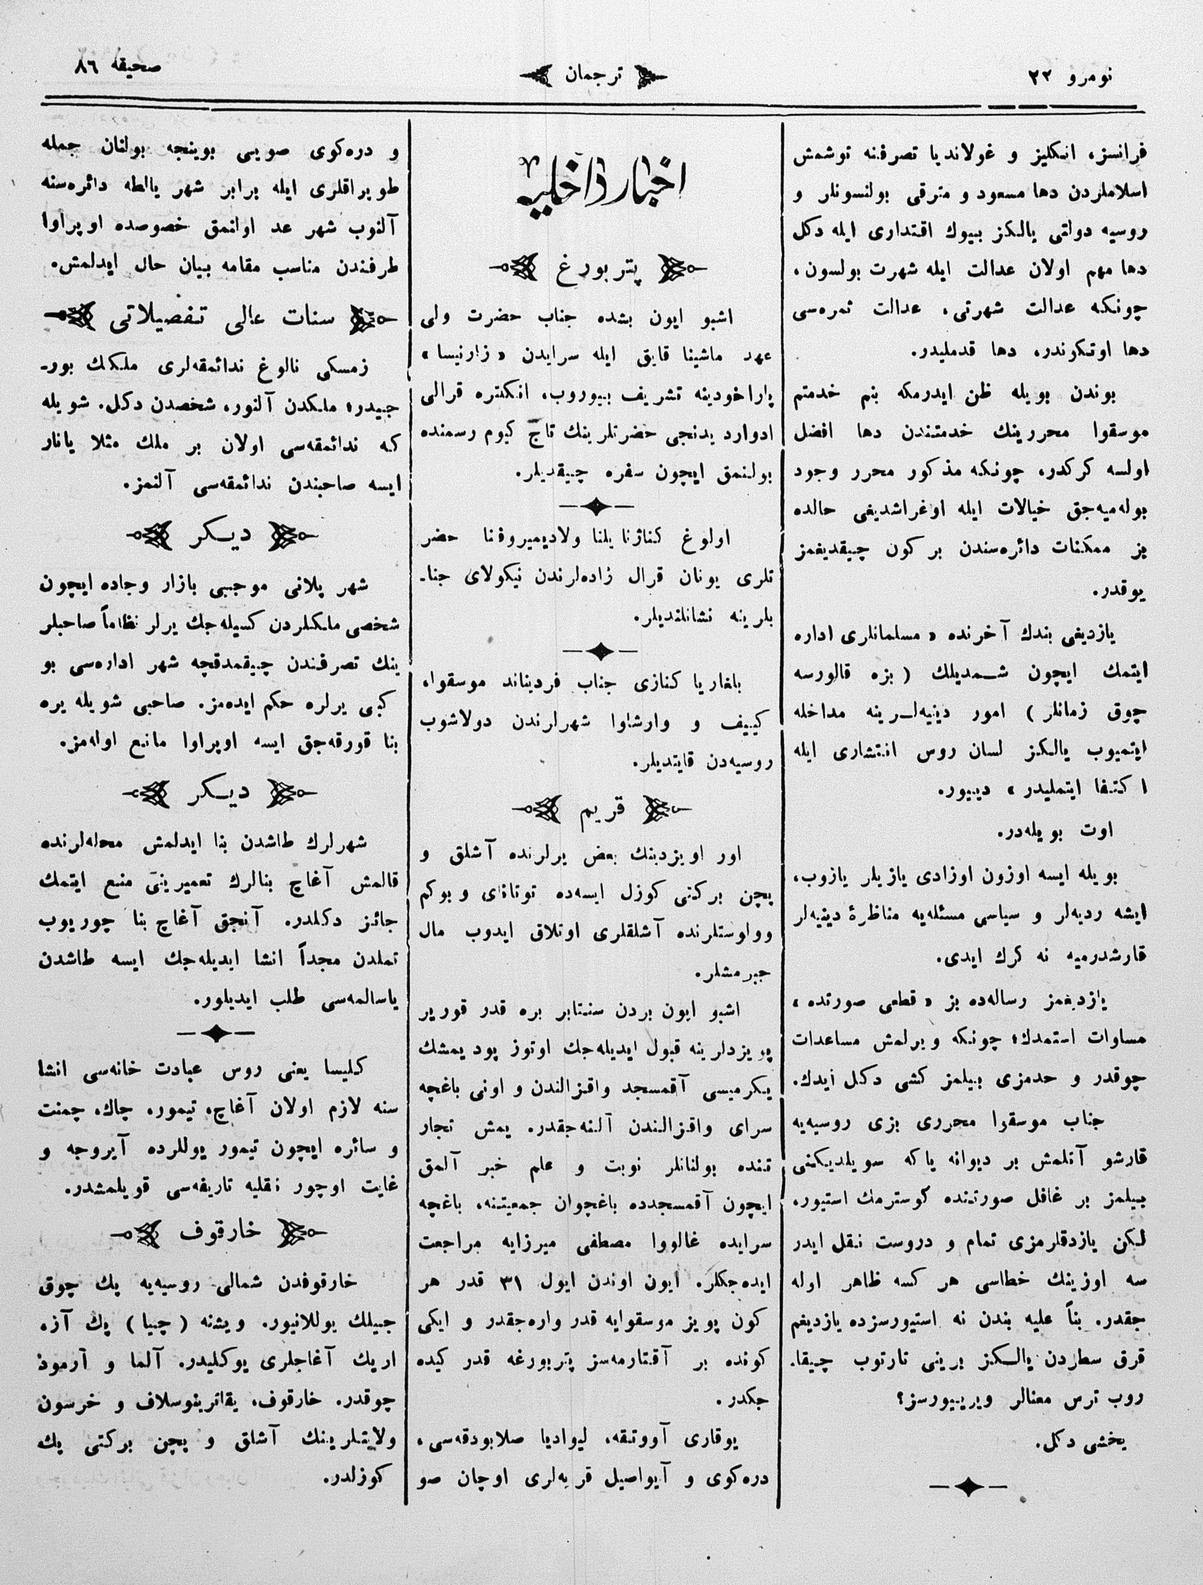 نومرو ٢٢
ترجمان
صحيفه ٨٦
فرانسز، انكليز و غولانديا تصرفنه توشمش
اسلاملردن دها مسعود و مترقى بولنسونلر و
روسيه دولتى يالكز بيوك اقتدارى ايله دكل
دها مهم اولان عدالت ايله شهرت بولسون،
چونكه عدالت شهرتى، عدالت ثمره‌سى
دها اوتكوندر، دها قدمليدر.
بوندن بويله ظن ايدرمكه بنم خدمتم
موسقوا محررينك خدمتندن دها افضل
اولسه كركدر، چونكه مذكور محرر وجود
بوله‌ميه‌جق خيالات ايله اوغراشديغى حالده
بز ممكنات دائره‌سندن بر كون چيقديغمز
يوقدر.
يازديغى بندك آخرنده «مسلمانلرى اداره
ايتمك ايچون شــمديلك (بزه قالورسه
چوق زمانلر) امور دينيه‌لــرينه مداخله
ايتميوب يالكز لسان روس انتشارى ايله
اكتفا ايتمليدر» دييور.
اوت بويله‌در.
بويله ايسه اوزون اوزادى يازيلر يازوب،
ايشه رديه‌لر و سياسى مسئله‌يه مناظرۀ دينيه‌لر
قارشدرميه نه كرك ايدى.
يازديغمز رساله‌ده بز «قطعى صورتده»
مساوات استمدك؛ چونكه ويرلمش مساعدات
چوقدر و حدمزى بيلمز كشى دكل ايدك.
جناب موسقوا محررى بزى روسيه‌يه
قارشو آتلمش بر ديوانه ياكه سويلديكنى
بيلمز بر غافل صورتنده كوسترمك استيور،
لكن يازدقلرمزى تمام و دروست نقل ايدر
سه اوزينك خطاسى هر كسه ظاهر اوله
جقدر. بناً عليه بندن نه استيورسزده يازديغم
قرق سطردن يالــكز برينى تارتوب چيقا.
روب ترس معنالر ويرييورسز؟
يخشى دكل.
اخبار داخليه
پتربورغ
اشبو ايون بشده جناب حضرت ولى
عهد ماشينا قايق ايله سرايدن «زارنيسا»
پاراخودينه تشريف بيوروب، انكلتره قرالى
ادوارد يدنجى حضرتلرينك تاج كيوم رسمنده
بولنمق ايچون سفره چيقديلر.
اولوغ كناژنا يلنا ولاديميروفنا حضر
تلرى يونان قرال زاده‌لرندن نيكولاى جنا.
بلرينه نشانلنديلر.
بلغاريا كنازى جناب فرديناند موسقوا،
كييف و وارشاوا شهرلرندن دولاشوب
روسيه‌دن قايتديلر.
قريم
اور اويزدينك بعض يرلرنده آشلق و
پچن بركتى كوزل ايسه‌ده توتاناى و بوكم
وولوستلرنده آشلقلرى اوتلاق ايدوب مال
جبرمشلر.
اشبو ايون بردن سنتابر بره قدر قورير
پويزدلرينه قبول ايديله‌جك اوتوز پود يمشك
يكرميسى آقمسجد واقزالندن و اونى باغچه
سراى واقزالندن آلنه‌جقدر. يمش تجار
تنده بولنانلر نوبت و علم خبر آلمق
ايچون آقمسجدده باغچوان جمعيتنه، باغچه
سرايده غالووا مصطفى ميرزايه مراجعت
ايده‌جكلر. ايون اوندن ايول ٣١ قدر هر
كون پويز موسقوايه قدر واره‌جقدر و ايكى
كونده بر آقتارمه‌سز پتربورغه قدر كيده
جكدر.
يوقارى آووتقه، ليواديا صلابودقه‌سى،
دره‌كوى و آيواصيل قريه‌لرى اوچان صو
و دره‌كوى صويى بوينجه بولنان جمله
طوپراقلرى ايله برابر شهر يالطه دائره‌سنه
آلنوب شهر عد اولنمق خصوصده اوپراوا
طرفندن مناسب مقامه بيان حال ايدلمش.
سنات عالى تفصيلاتى
زمسكى نالوغ ندائمقه‌لرى ملكك بور.
جيدر؛ ملكدن آلنور، شخصدن دكل. شويله
كه ندائمقه‌سى اولان بر ملك مثلا يانار
ايسه صاحبندن ندائمقه‌سى آلنمز.
ديــكر
شهر پلانى موجبى بازار وجاده ايچون
شخصى ملكلردن كسيله‌جك يرلر نظاماً صاحبلر
ينك تصرفندن چيقمدقچه شهر اداره‌سى بو
كبى يرلره حكم ايده‌مز. صاحبى شويله يره
بنا قورقه‌جق ايسه اوپراوا مانع اوله‌مز.
ديــكر
شهرلرك طاشدن بنا ايدلمش محله‌لرنده
قالمش آغاچ بنالرك تعميرينى منع ايتمك
جائز دكلدر. آنجق آغاچ بنا چوريوب
تملدن مجدداً انشا ايديله‌جك ايسه طاشدن
ياسالمه‌سى طلب ايديلور.
كليسا يعنى روس عبادت خانه‌سى انشا
سنه لازم اولان آغاچ، تيمور، چاك، چمنت
و سائره ايچون تيمور يوللرده آيروجه و
غايت اوچور نقليه تاريفه‌سى قويلمشدر.
خارقوف
خارقوفدن شمالى روسيه‌يه پك چوق
جيلك يوللانيور. ويشنه (چيا) پك آزه
اريك آغاجلرى يوكليدر. آلما و آرمود
چوقدر. خارقوف، يقاترينوسلاف و خرسون
ولايتلرينك آشلق و پچن بركتى پك
كوزلدر.